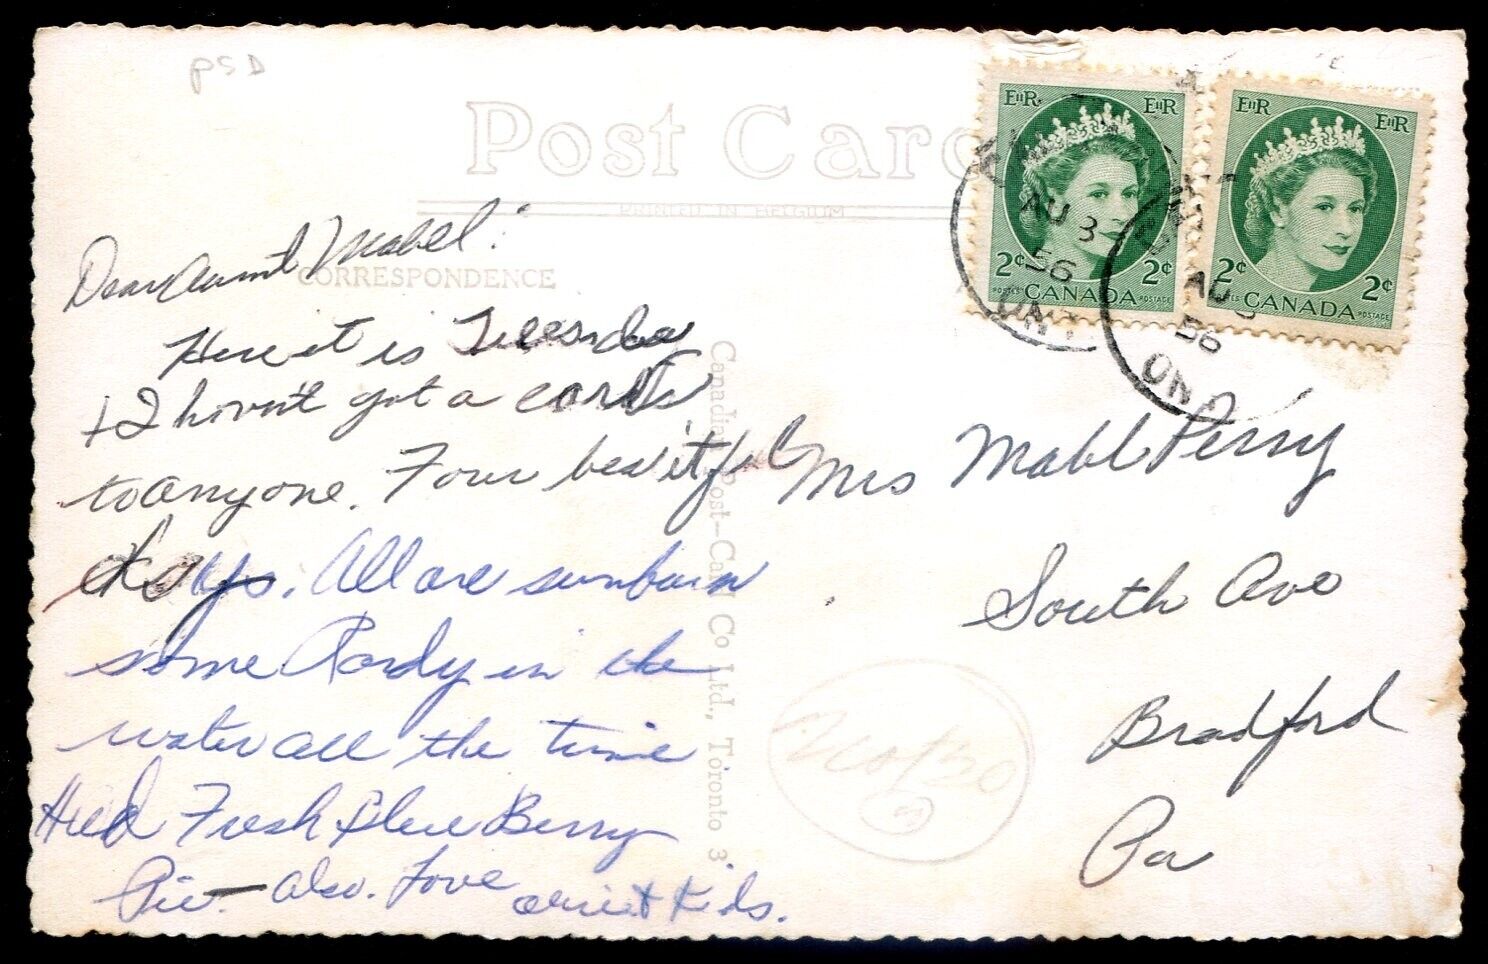 PSD
Post Card
PRINTED IN BELGIUM
EIIR EIIR
2¢ 2¢
POSTES CANADA POSTAGE
EIIR EIIR
2¢ 2¢
CANADA POSTAGE
AU 3
56
ONT
AU
56
ONT
CORRESPONDENCE
Dear Aunt Mabel:
Here it is Tuesday
+ I haven't got a cards
to anyone. Four beautiful
days. All are sunburn
some Randy in the
water all the time
Had Fresh Blue Berry
Pie - also. Love
Kids.
Canadian Post-Card Co Ltd., Toronto 3
Mrs Mabl Perry
South Ave
Bradford
Pa